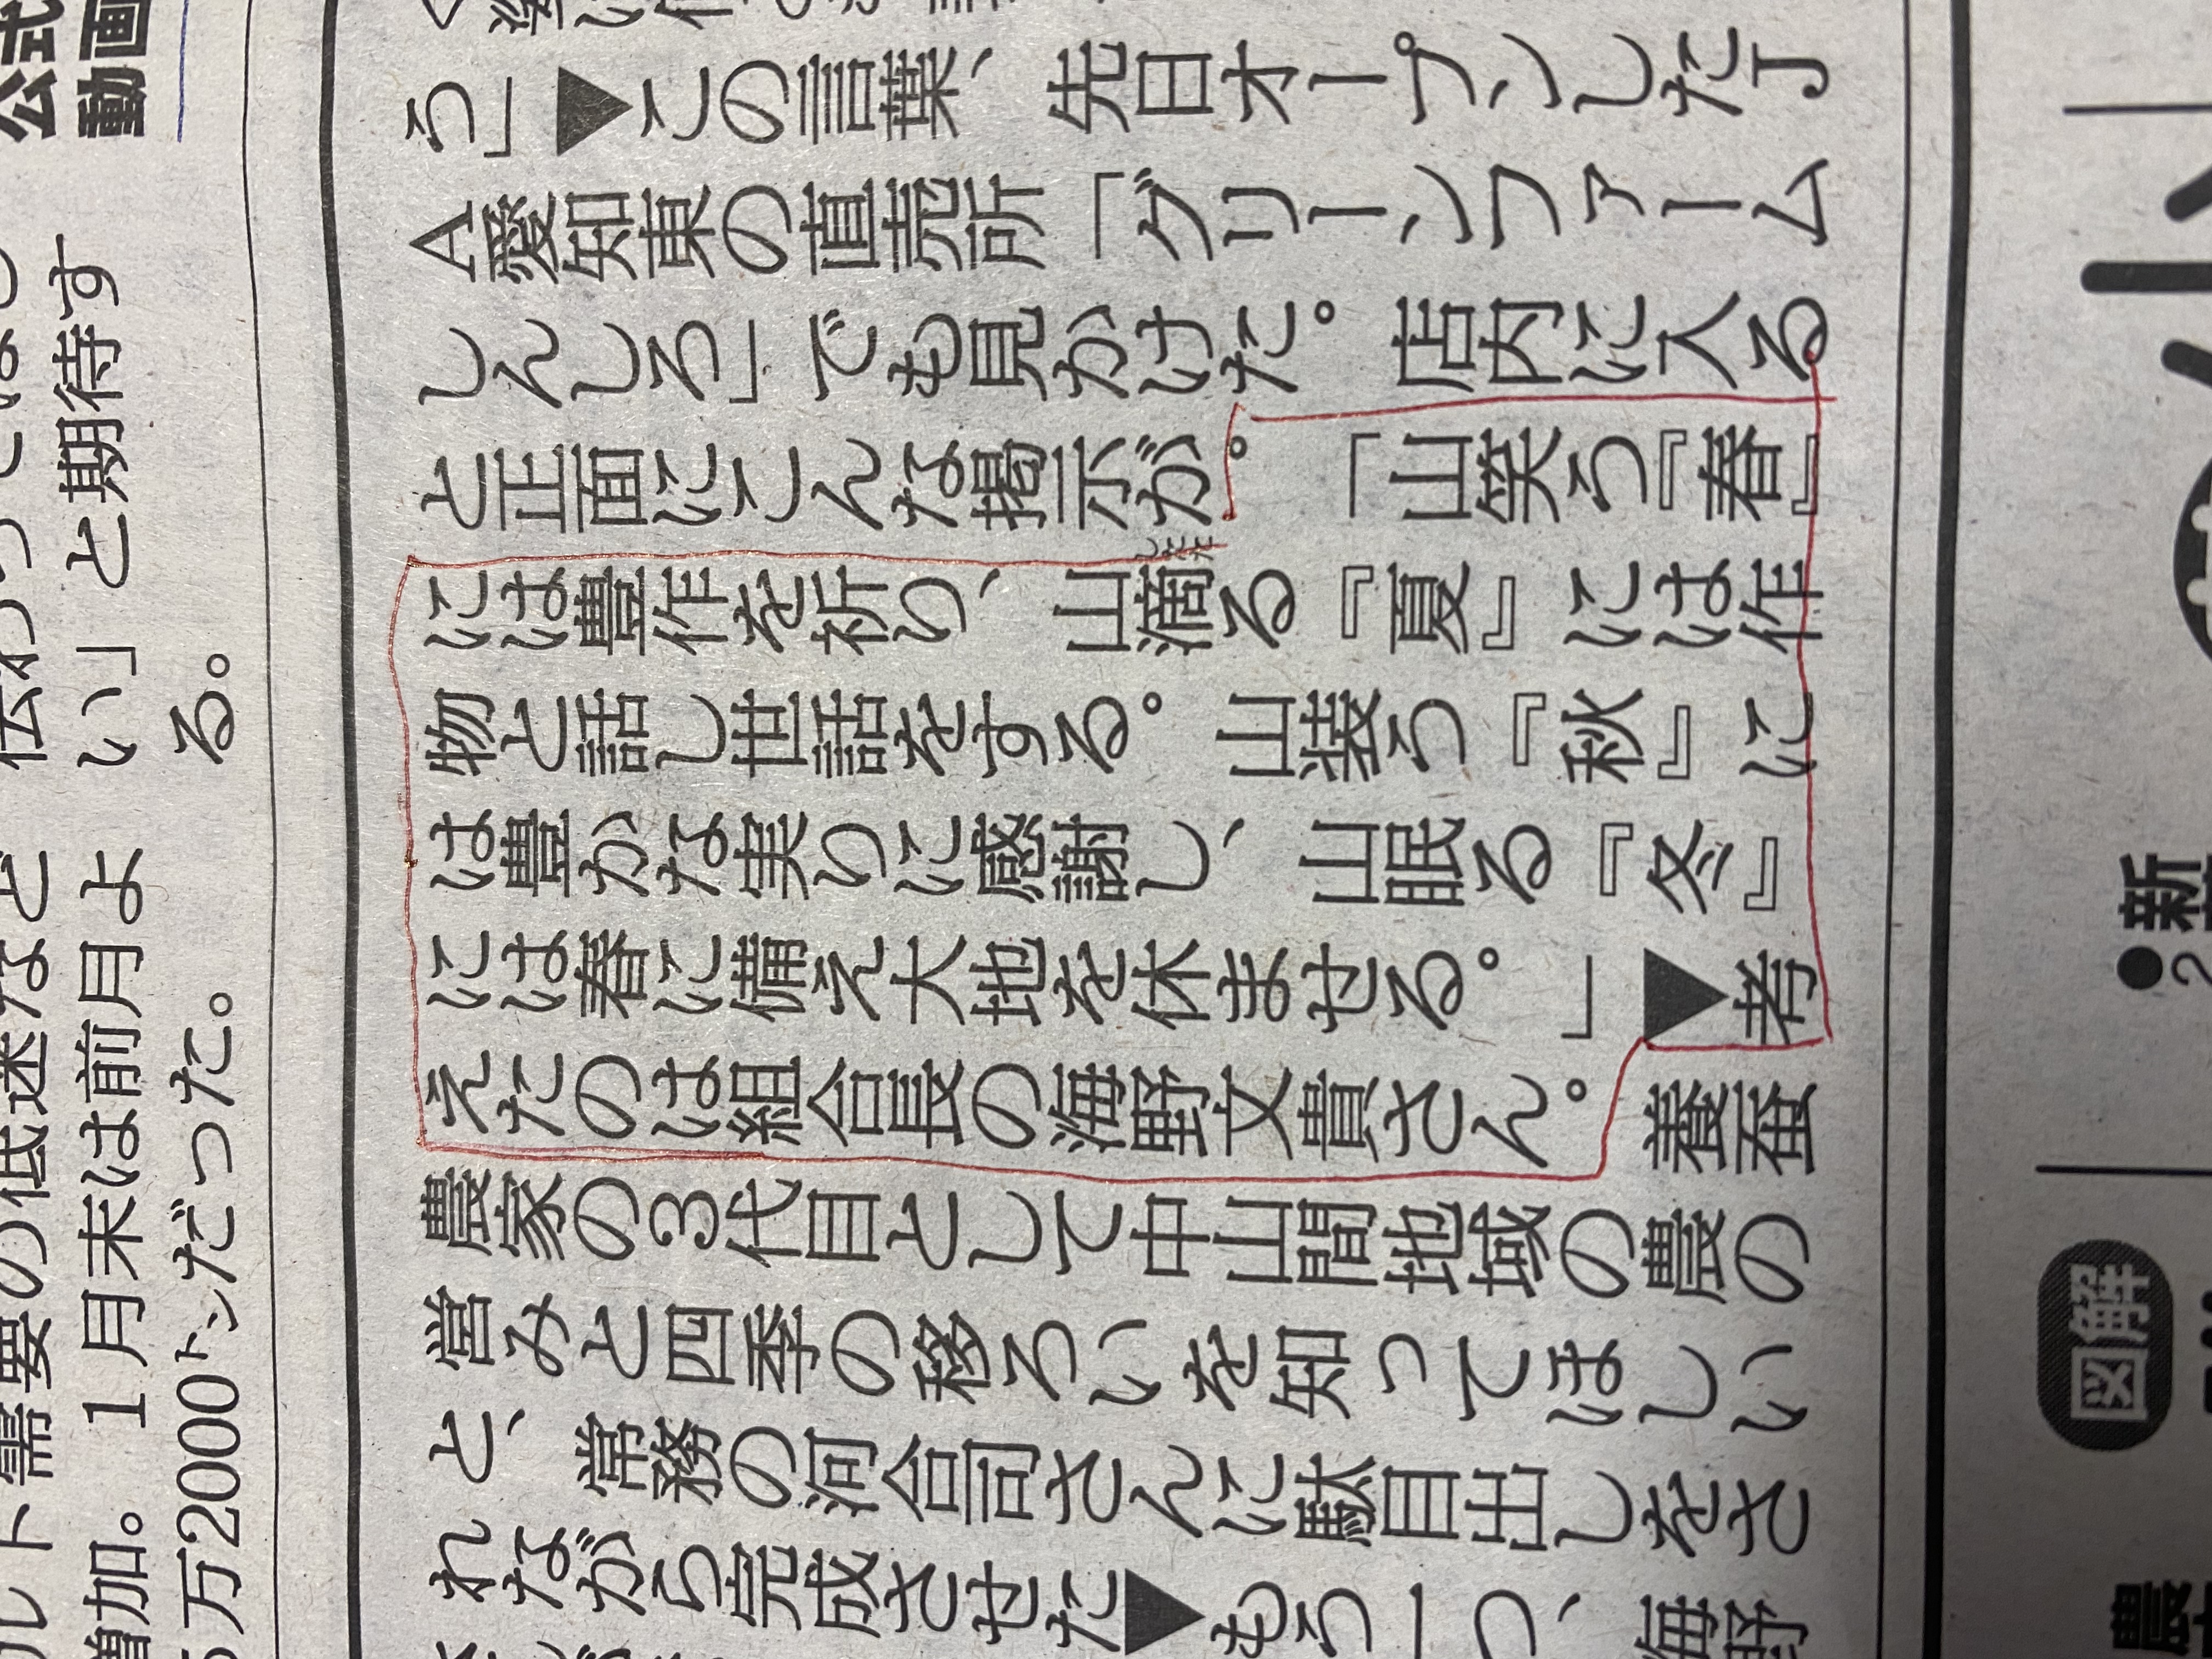 ルト需要の低迷など
増加。1月末は前月よ
5万2000㌧だった。
い」と期待す
る。
公式
動画
う」▼この言葉、先日オープンしたJ
A愛知東の直売所「グリーンファーム
しんしろ」でも見かけた。店内に入る
と正面にこんな掲示が。「山笑う『春』
には豊作を祈り、山滴る『夏』には作
したた
物と話し世話をする。山装う『秋』に
は豊かな実りに感謝し、山眠る『冬』
には春に備え大地を休ませる。」▼考
えたのは組合長の海野文貴さん。養蚕
農家の3代目として中山間地域の農の
営みと四季の移ろいを知ってほしい
と、常務の河合司さんに駄目出しをさ
れながら完成させた▼もう一つ、海野
図解
●2
新
小
農